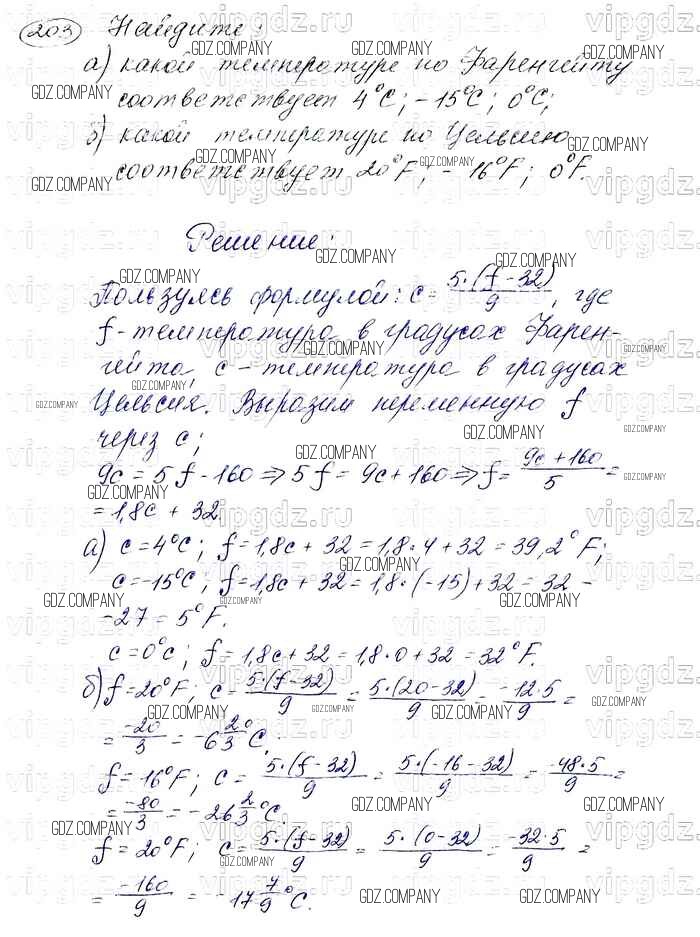 203 Найдите:
а) какой температуре по Фаренгейту
соответствует 4°С; -15°С; 0°С;
б) какой температуре по Цельсию
соответствует 20°F; -16°F; 0°F.
Решение:
Пользуясь формулой: c = 5·(f-32)/9, где
f - температура в градусах Фарен-
гейта c - температура в градусах
Цельсия. Выразим переменную f
через c;
9c = 5f - 160 ⇒ 5f = 9c + 160 ⇒ f = (9c + 160)/5 =
= 1,8c + 32.
а) c = 4°C; f = 1,8c + 32 = 1,8·4 + 32 = 39,2°F;
c = -15°C; f = 1,8c + 32 = 1,8·(-15) + 32 = 32 -
-27 = 5°F.
c = 0°c; f = 1,8c + 32 = 1,8·0 + 32 = 32°F.
б) f = 20°F, c = 5·(f-32)/9 = 5·(20-32)/9 = -12·5/9 =
= -20/3 = -6 2/3 °C.
f = 16°F; c = 5·(f-32)/9 = 5·(-16-32)/9 = -48·5/9 =
= -80/3 = -26 2/3 °C.
f = 20°F; c = 5·(f-32)/9 = 5·(0-32)/9 = -32·5/9 =
= -160/9 = -17 7/9 °C.
GDZ.COMPANY
vipgdz.ru